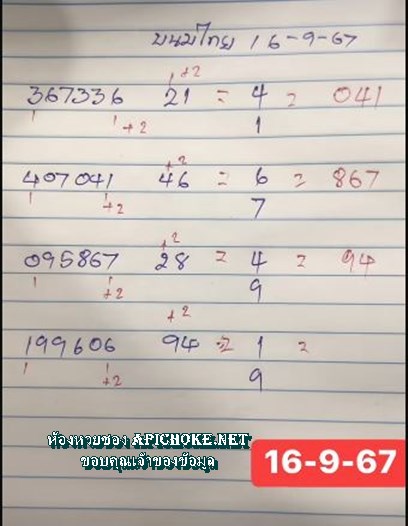 ขนมไทย 16-9-67
+2
367336 21 = 4 = 041
+2 1
+2
407041 46 = 6 = 867
+2 7
+2
095867 28 = 4 = 94
+2 9
+2
199606 94 = 1 =
+2 9
ห้องหวยซอง APICHOKE.NET
ขอบคุณเจ้าของข้อมูล
16-9-67